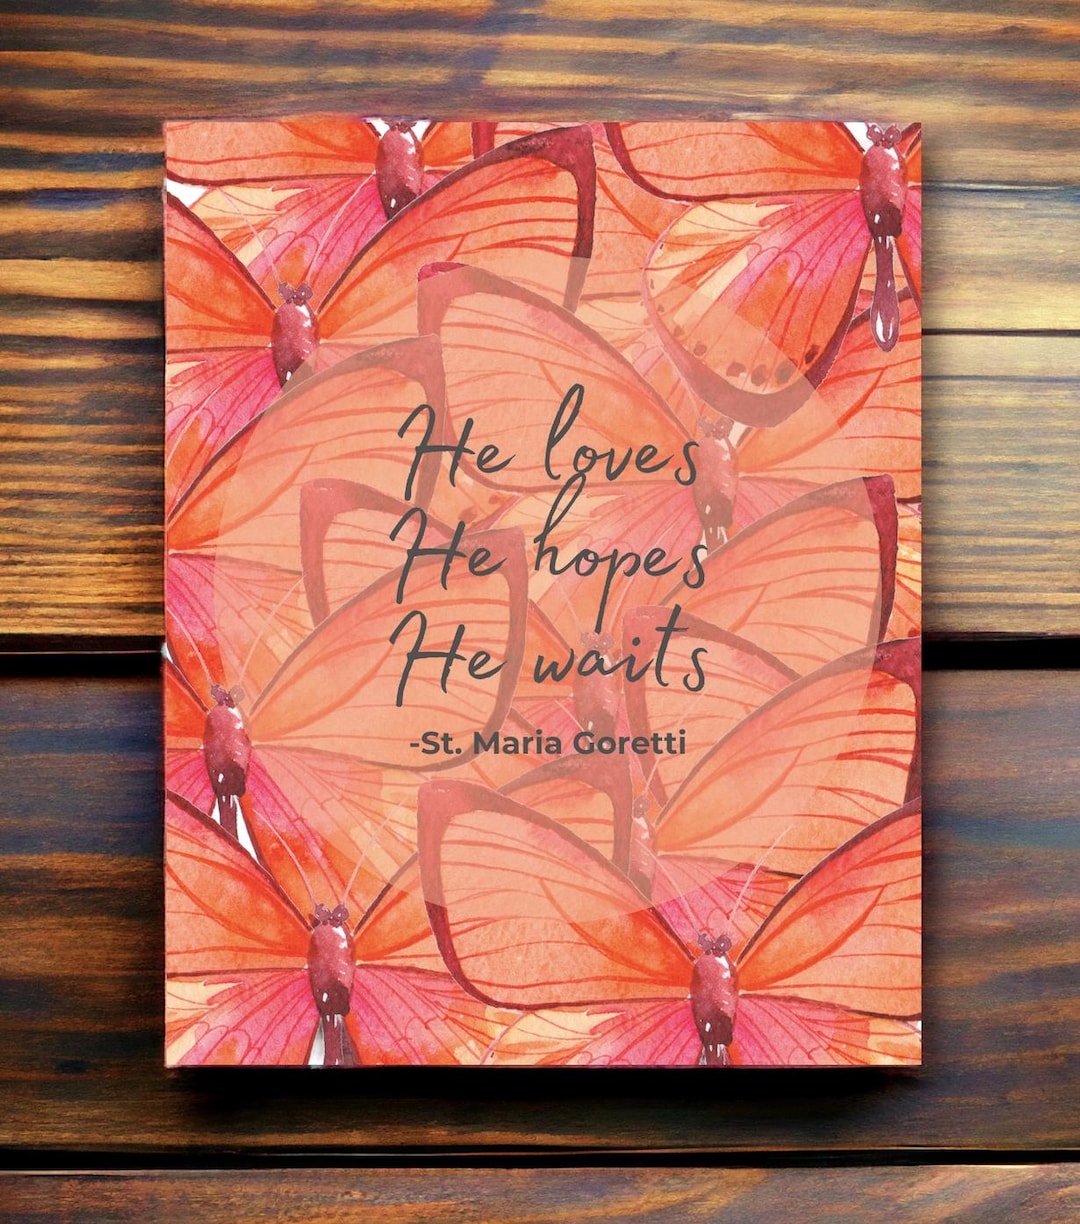 He loves
He hopes
He waits
-St. Maria Goretti